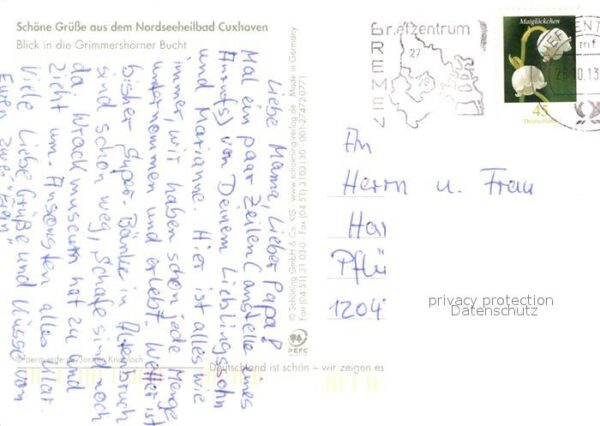 Schöne Grüße aus dem Nordseeheilbad Cuxhaven
Blick in die Grimmershörner Bucht
Liebe Mama, Lieber Papa!
Mal ein paar Zeilen (anstelle eines
Anruf(s) von Deinem Lieblingssohn
und Marianne. Hier ist alles wie
immer wir haben schon jede Menge
unternommen und erlebt. Wetter ist
bisher super. Bänke in Altenbruch
sind schon weg, Schafe sind noch
da. Wrackmuseum hat zu und
zieht um. Ansonsten alles klar.
Viele Liebe Grüße und Küsse von
Euren zwei
© Schöning GmbH & Co. KG · www.schoening-verlag.de · Made in Germany
PEFC
Deutschland ist schön – wir zeigen es
Briefzentrum
BREMEN
27
28
Maiglöckchen
45
Deutschland
An
Herrn u. Frau
Har
Pflü
1204
privacy protection
Datenschutz